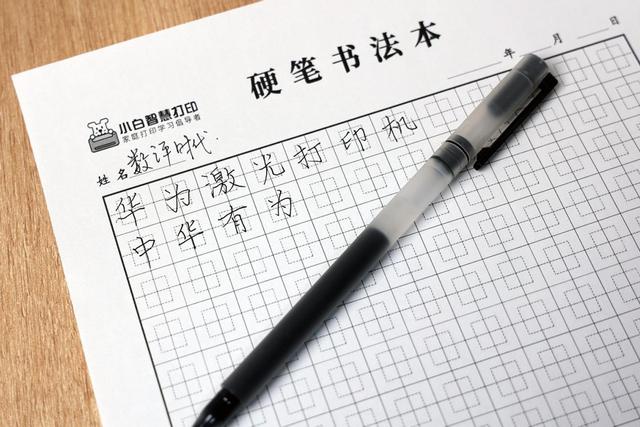 硬笔书法本
年 月 日
小白智慧打印
家庭打印学习倡导者
姓名 数评时代.
华为激光打印机
中华有为